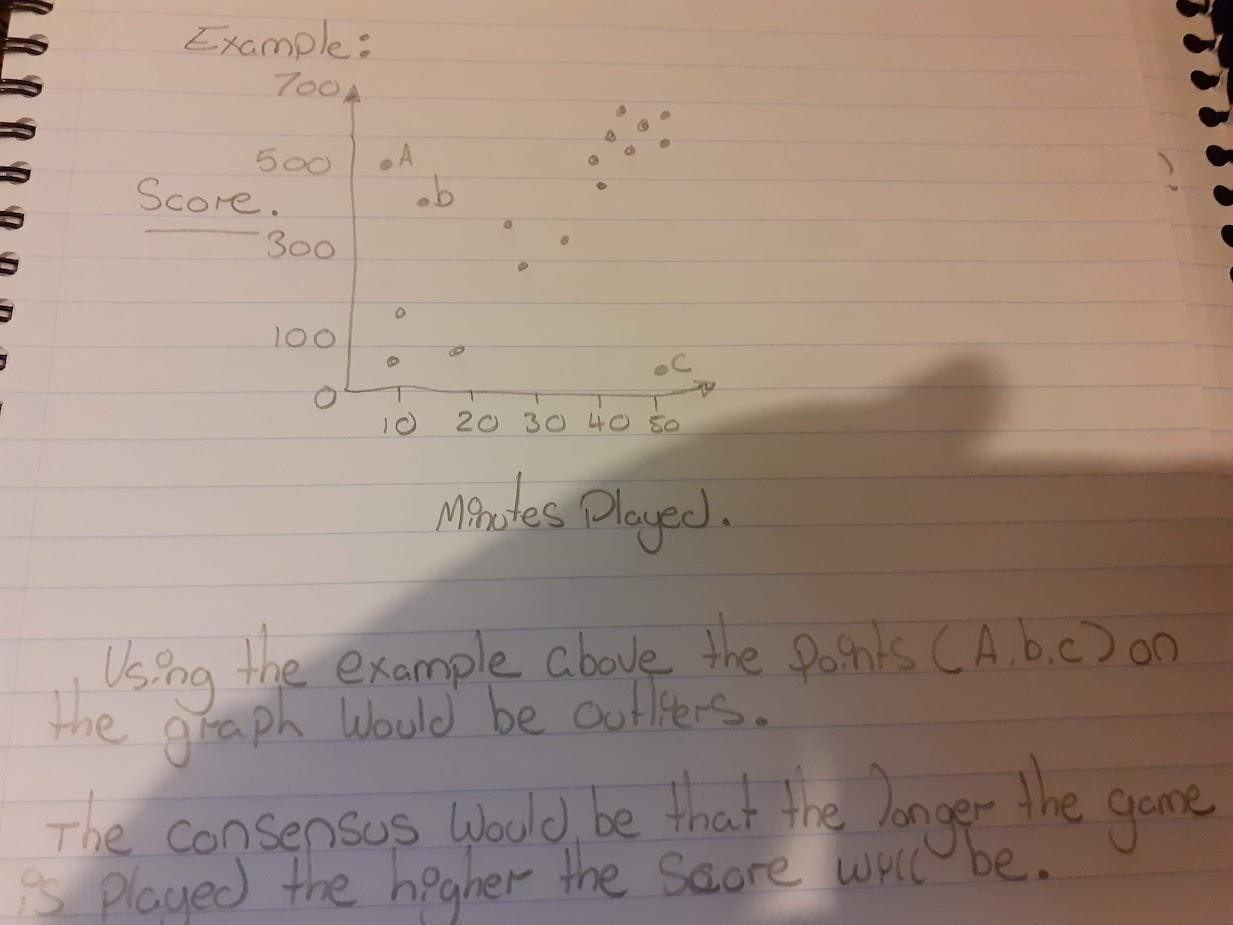 Example:
700
500
A
Score.
b
300
100
C
0
10 20 30 40 50
Minutes Played.
Using the example above the points (A.b.c) on
the graph would be outliers.
The consensus would be that the longer the game
is played the higher the score will be.